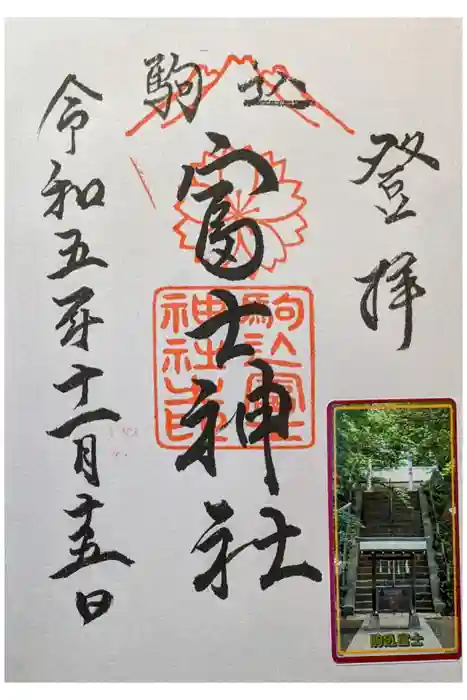 登拝
駒込
富士神社
駒込富士
神社
令和五年十一月十五日
駒込富士